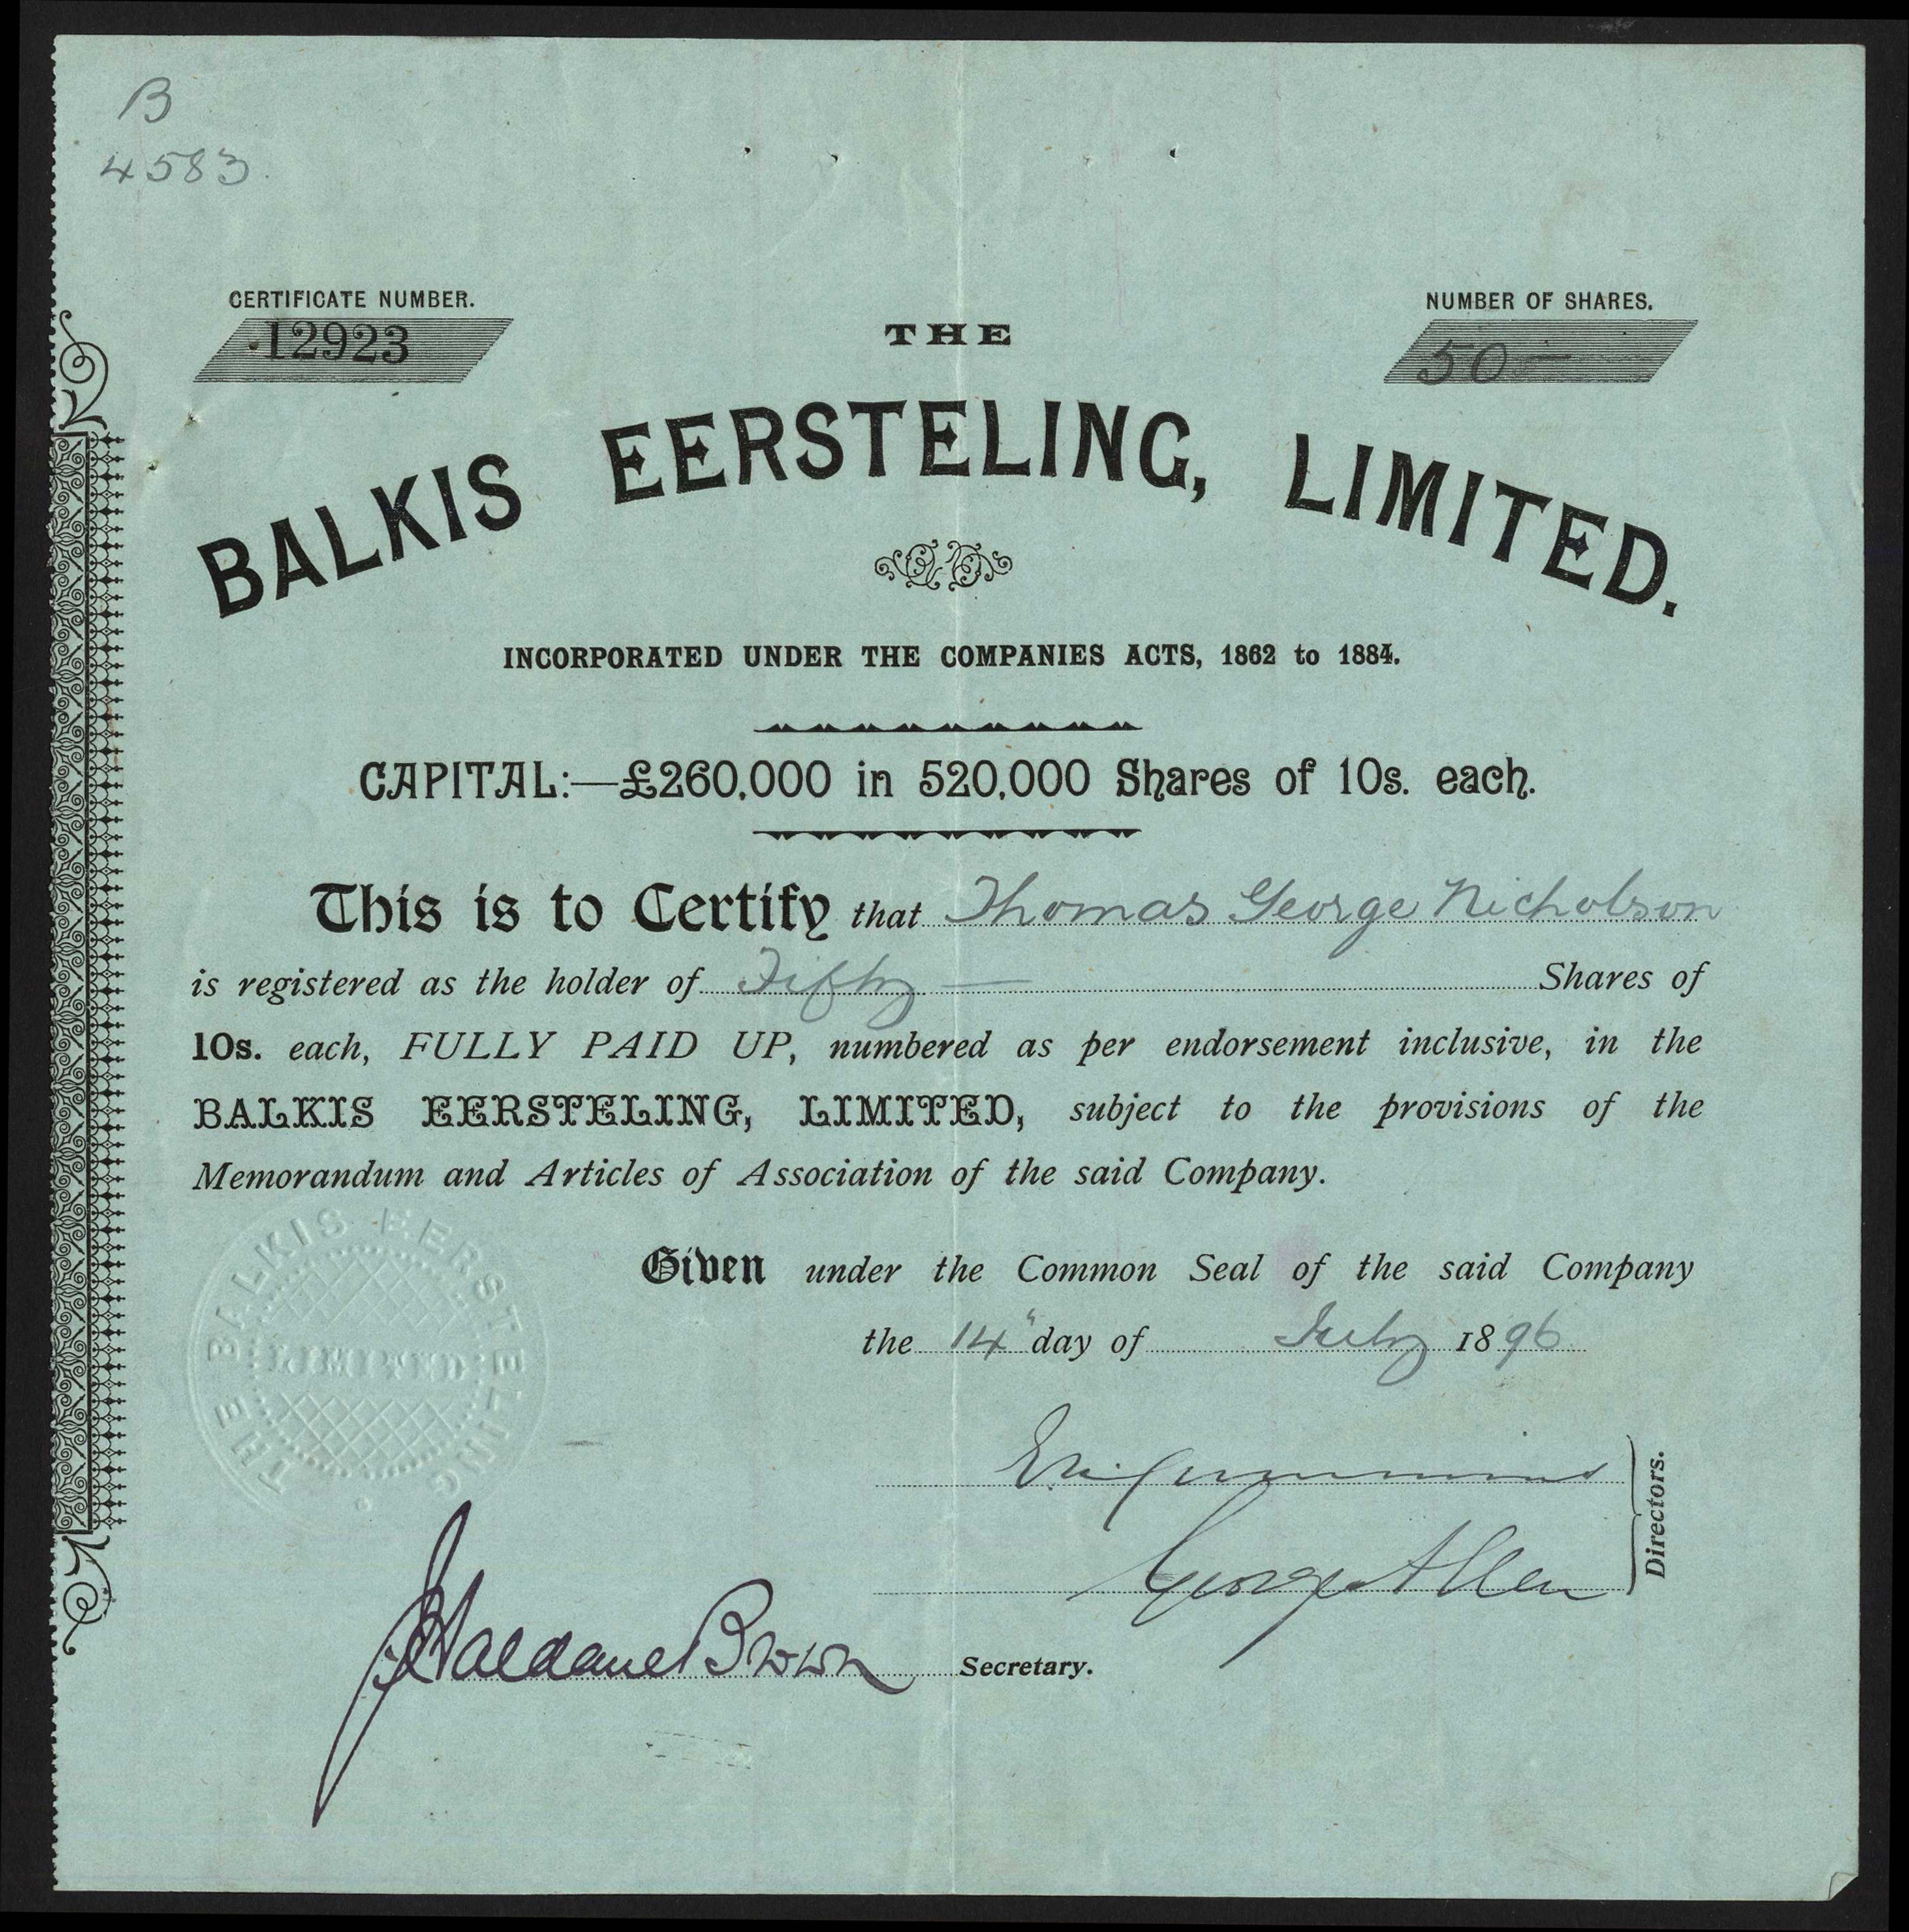 B
4583
CERTIFICATE NUMBER.
12923
NUMBER OF SHARES.
50
THE
BALKIS EERSTELING, LIMITED.
INCORPORATED UNDER THE COMPANIES ACTS, 1862 to 1884.
CAPITAL:—£260,000 in 520,000 Shares of 10s. each.
This is to Certify that Thomas George Nicholson
is registered as the holder of Fifty — Shares of
10s. each, FULLY PAID UP, numbered as per endorsement inclusive, in the
BALKIS EERSTELING, LIMITED, subject to the provisions of the
Memorandum and Articles of Association of the said Company.
Given under the Common Seal of the said Company
the 14" day of July 1896
THE BALKIS EERSTELING
LIMITED
George Allen
Directors.
J Haldane Brown Secretary.